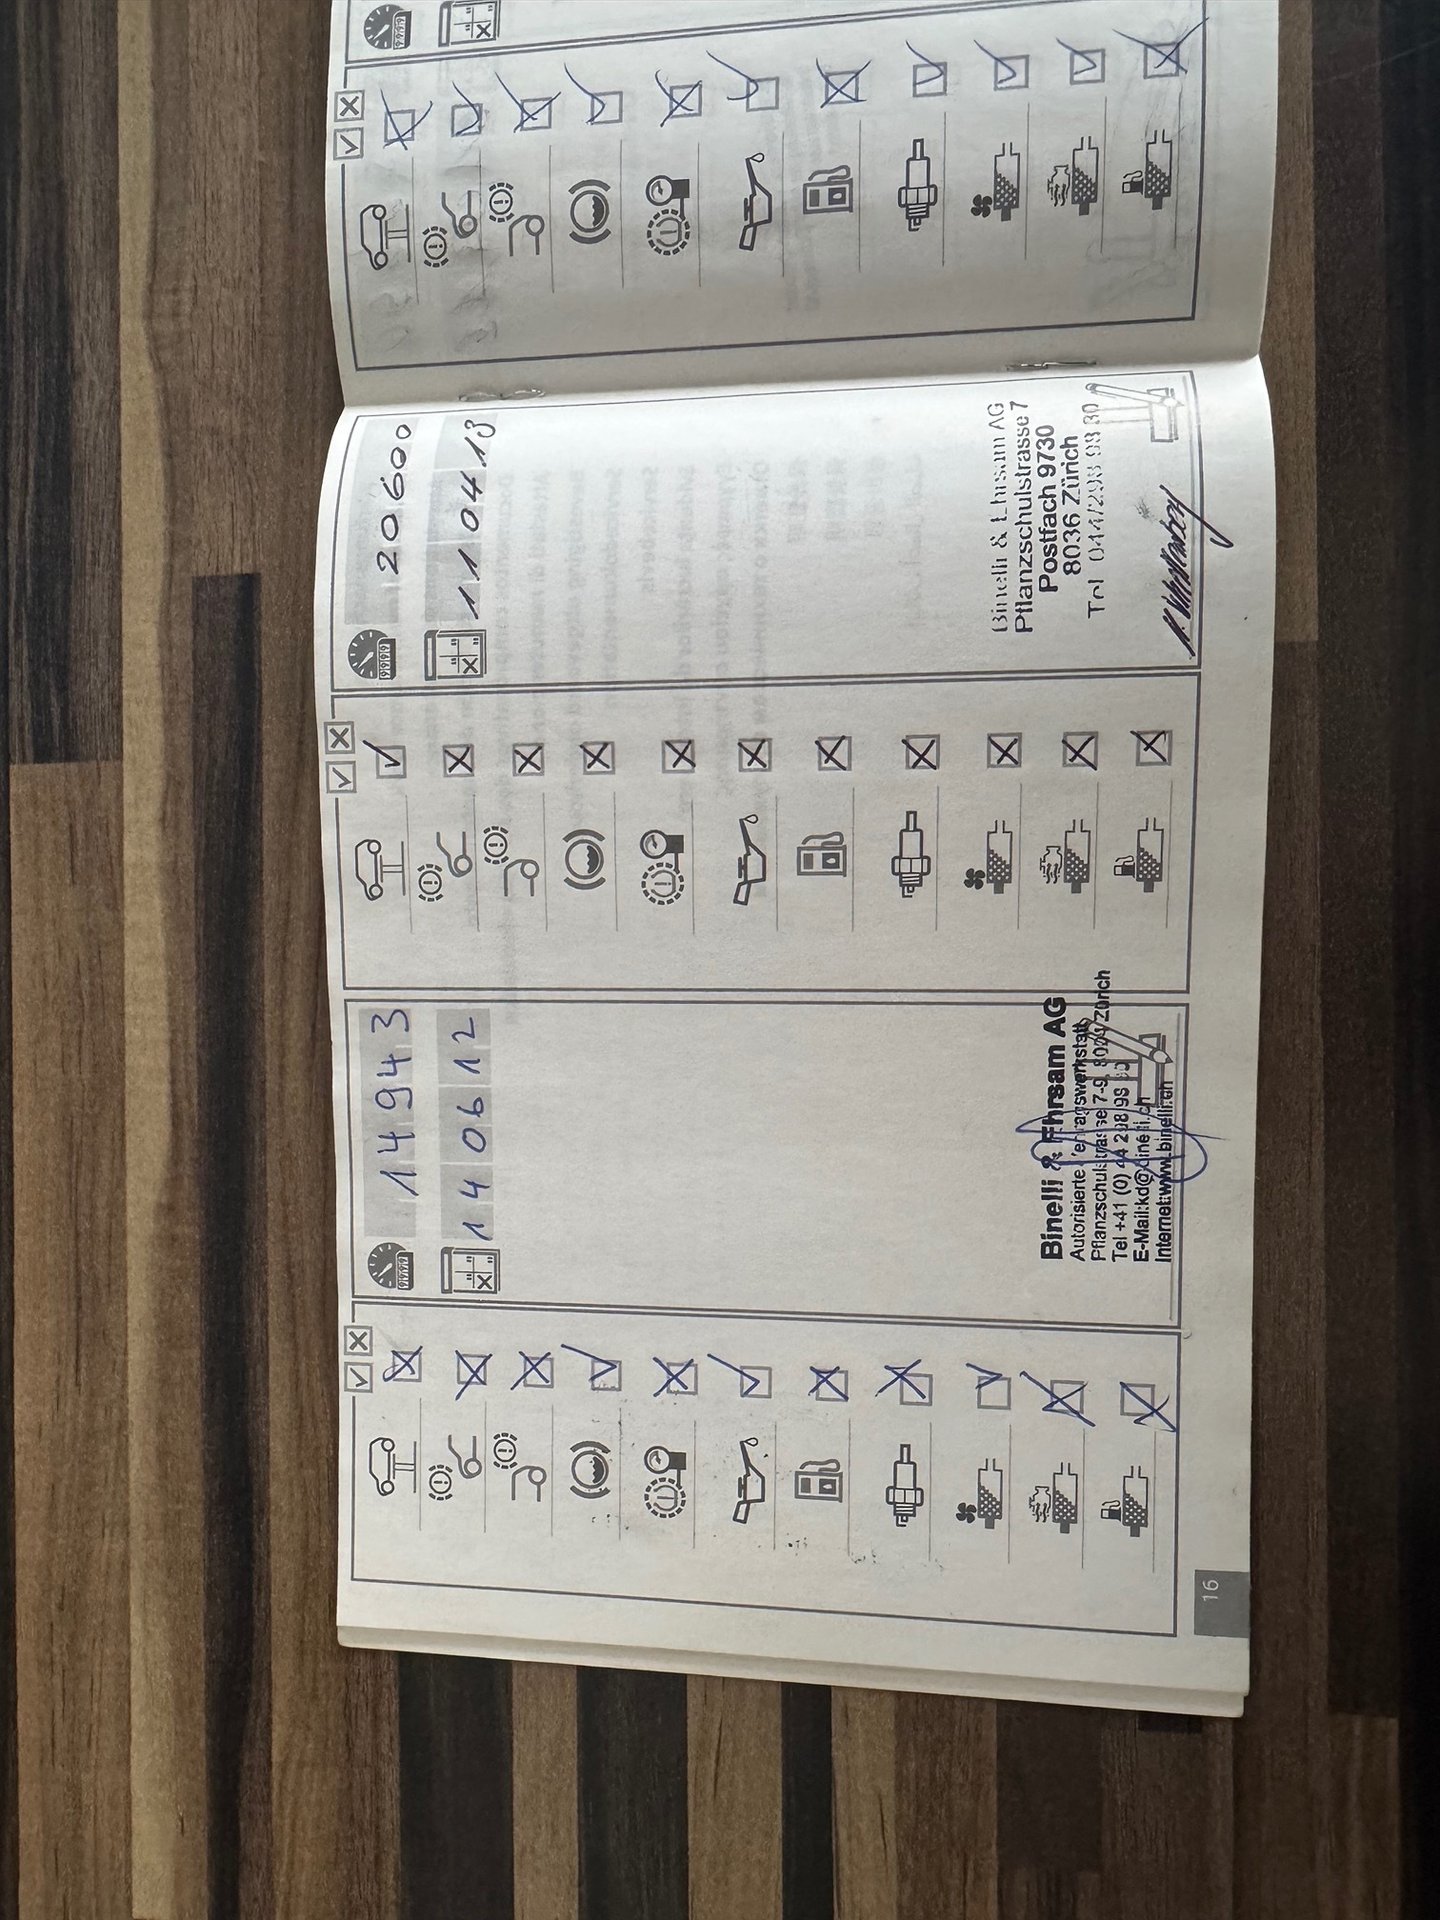 14943
140612
Binelli & Ehrsam AG
Autorisierte Vertragswerkstatt
Pflanzschulstrasse 7-9, 8004 Zürich
Tel +41 (0) 44 298 98
E-Mail:kd@binelli.ch
Internet:www.binelli.ch
16
20600
110413
Binelli & Ehrsam AG
Pflanzschulstrasse 7
Postfach 9730
8036 Zürich
Tel 044/298 98 80